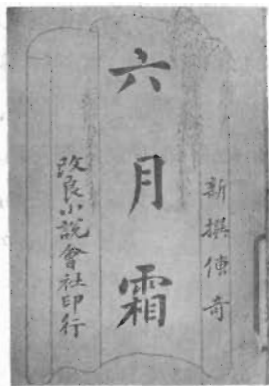 新撰傳奇
六月霜
改良小說會社印行